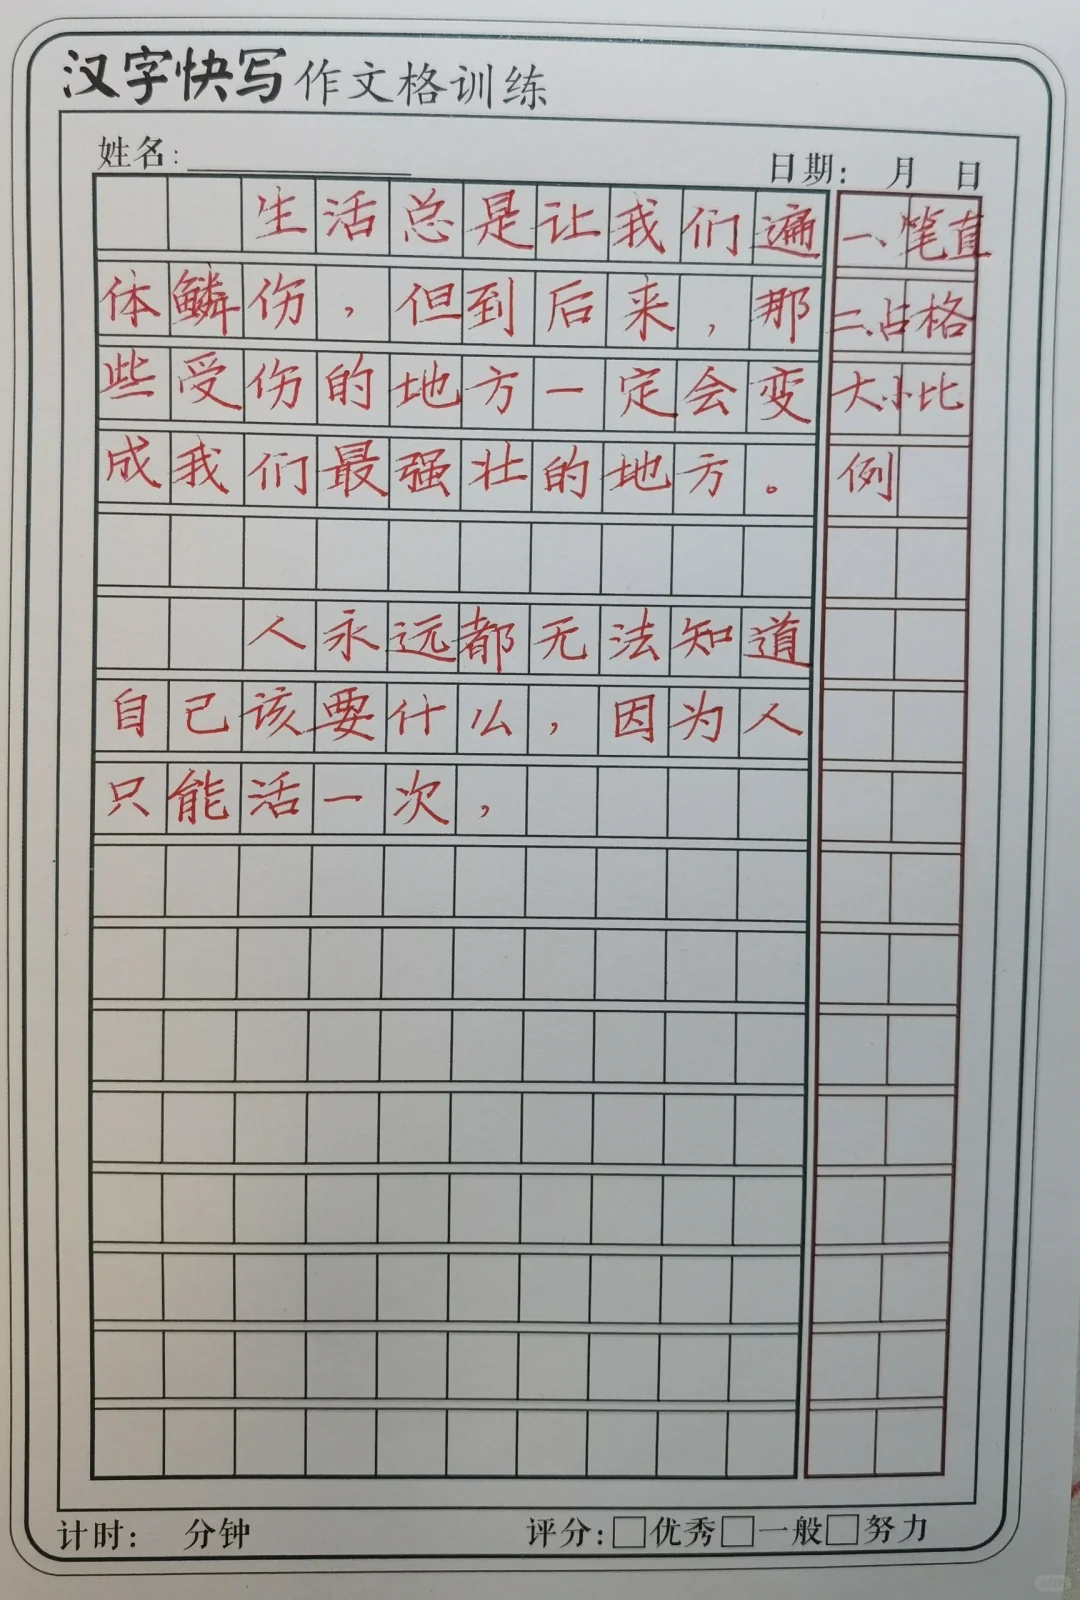 汉字快写作文格训练
姓名:
日期: 月 日
生活总是让我们遍
体鳞伤,但到后来,那
些受伤的地方一定会变
成我们最强壮的地方。
人永远都无法知道
自己该要什么,因为人
只能活一次,
一、笔直
二、占格
大小比
例
计时: 分钟
评分:□优秀□一般□努力